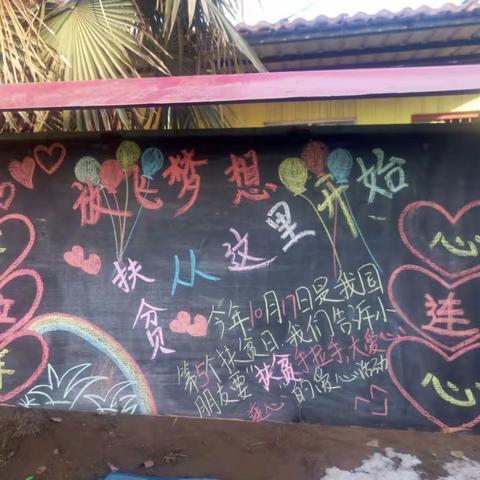 放飞梦想
从这里开始
扶贫
手
拉
手
心
连
心
今年10月17日是我国
第5个扶贫日,我们告诉小
朋友要“扶贫手拉手,大爱心
连心”的爱心活动